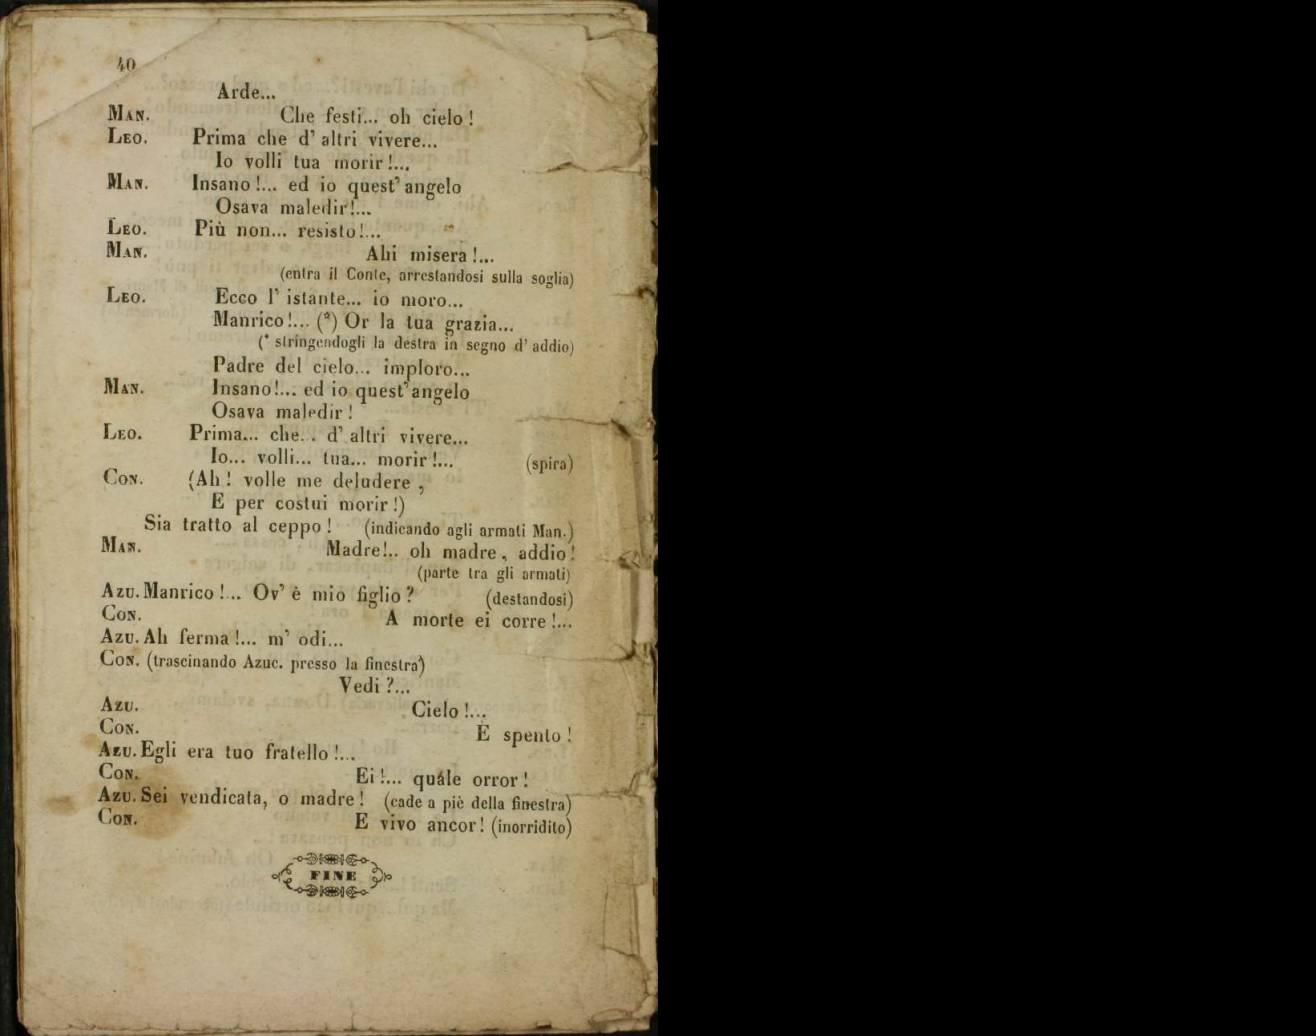 40
Arde...
MAN. Che festi... oh cielo!
LEO. Prima che d'altri vivere...
Io volli tua morir!...
MAN. Insano!... ed io quest'angelo
Osava maledir!...
LEO. Più non... resisto!...
MAN. Ahi misera!...
(entra il Conte, arrestandosi sulla soglia)
LEO. Ecco l'istante... io moro...
Manrico!... (*) Or la tua grazia...
(* stringendogli la destra in segno d'addio)
Padre del cielo... imploro...
MAN. Insano!... ed io quest'angelo
Osava maledir!
LEO. Prima... che... d'altri vivere...
Io... volli... tua... morir!... (spira)
CON. (Ah! volle me deludere,
E per costui morir!)
Sia tratto al ceppo! (indicando agli armati Man.)
MAN. Madre!.. oh madre, addio!
(parte tra gli armati)
AZU. Manrico!... Ov'è mio figlio? (destandosi)
CON. A morte ei corre!...
AZU. Ah ferma!... m'odi...
CON. (trascinando Azuc. presso la finestra)
Vedi?...
AZU. Cielo!...
CON. È spento!
AZU. Egli era tuo fratello!...
CON. Ei!... quále orror!
AZU. Sei vendicata, o madre! (cade a piè della finestra)
CON. E vivo ancor! (inorridito)
FINE